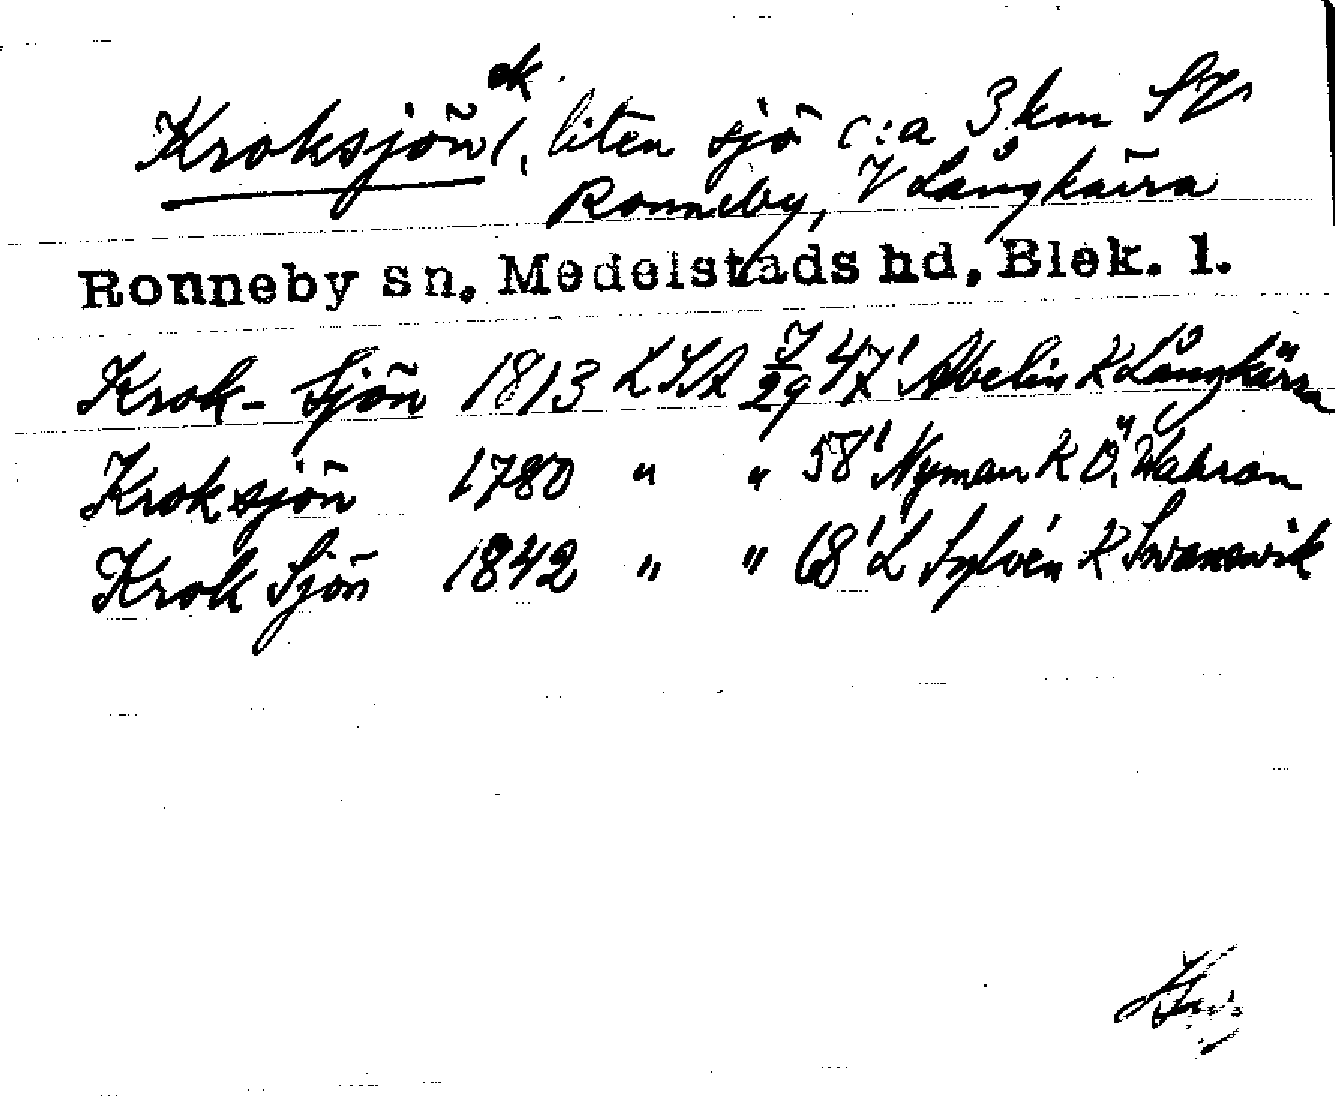 Kroksjön, ek
liten sjö c:a 3 km
Ronneby, V Långkärra
Ronneby sn, Medelstads hd, Blek. l.
Krok-Sjön 1813 LSA J/29 47' Abelin K Långkärra
Kroksjön 1780 " " 58' Nyman K Ö. Wabron
Krok Sjön 1842 " " 68' L Sylvén K Swanewik